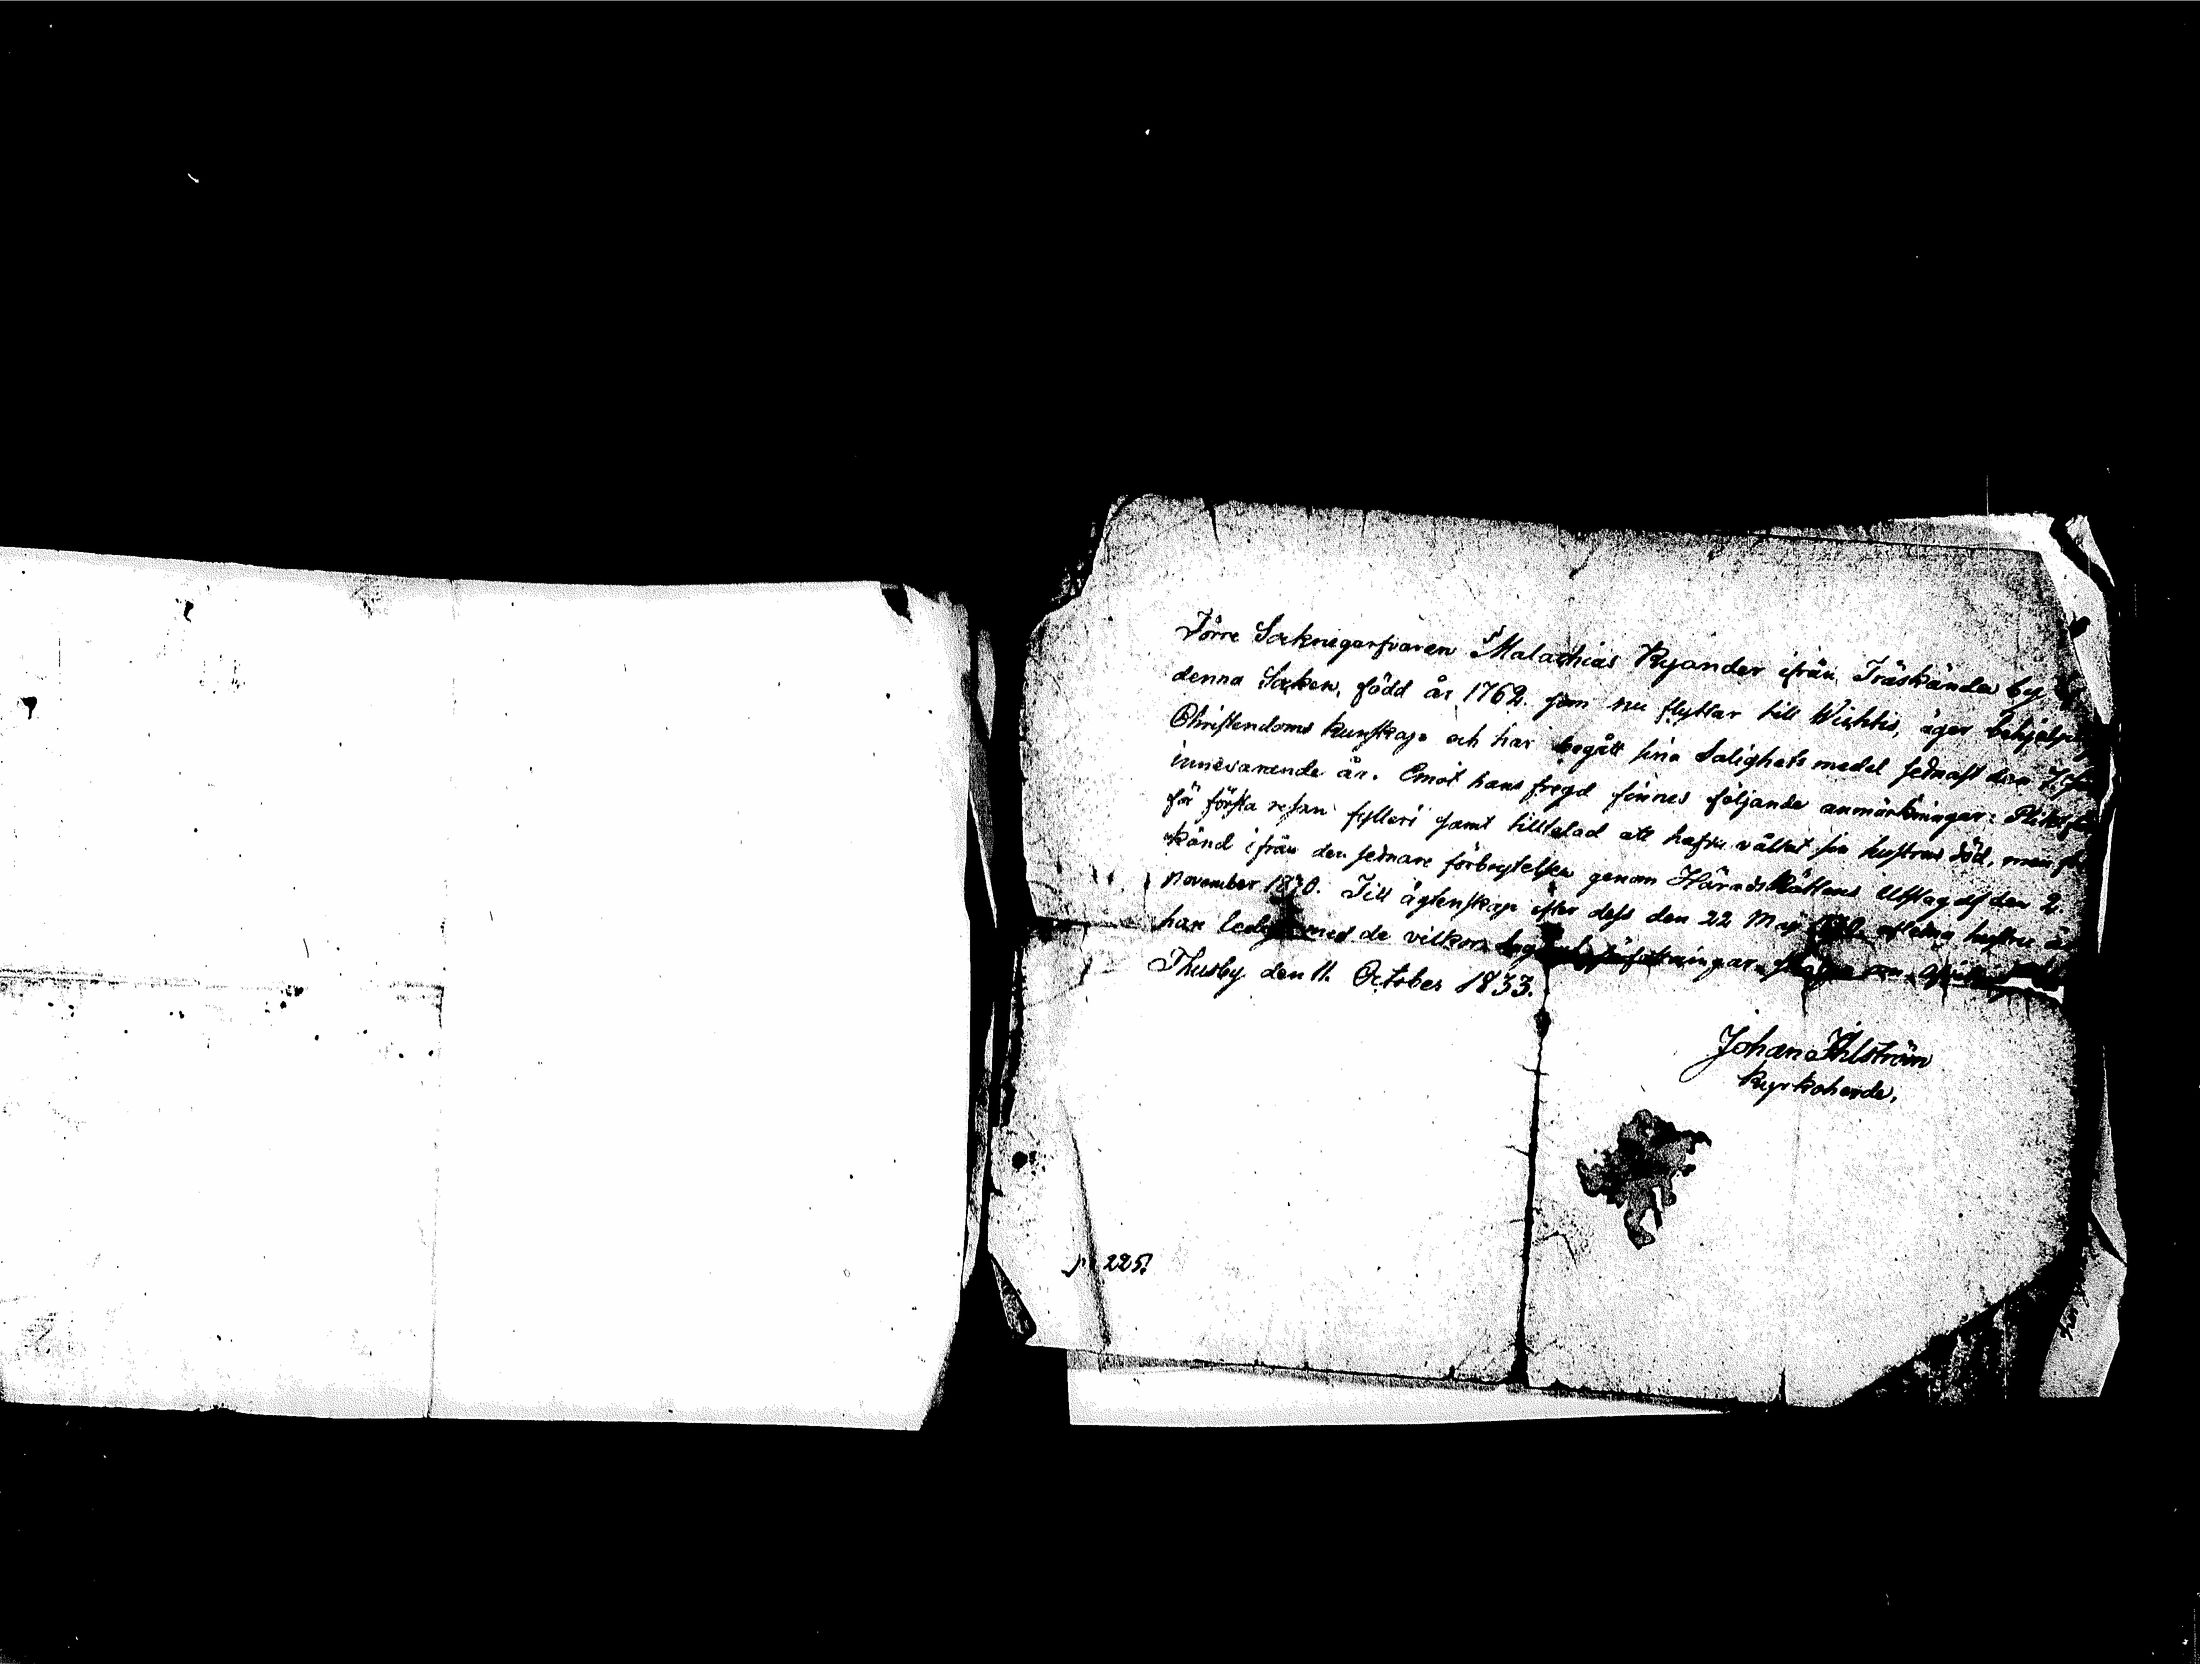 Förre Sockneгarfvaren Malachias Ryander ifrån Träskända by
denna Socken, född år 1762. som nu flyttar till Wichtis, äger behjelp
Christendoms kunskap och har begått sina Salighets medel sednast den
innevarande år. Emot hans fregd finnes följande anmärkningar:
för första resan fylleri samt tilltalad att hafva vållat sin hustrus död, men
känd ifrån den sednare förbrytelsen genom HäradsRättens Utslag af den 2.
November 1830. Till ägtenskap efter dess den 22 Maij aflidna hustru är
han ledig med de vilkor
Thusby den 11. October 1833.
Johan Ahlström
Kyrkoherde.
225.